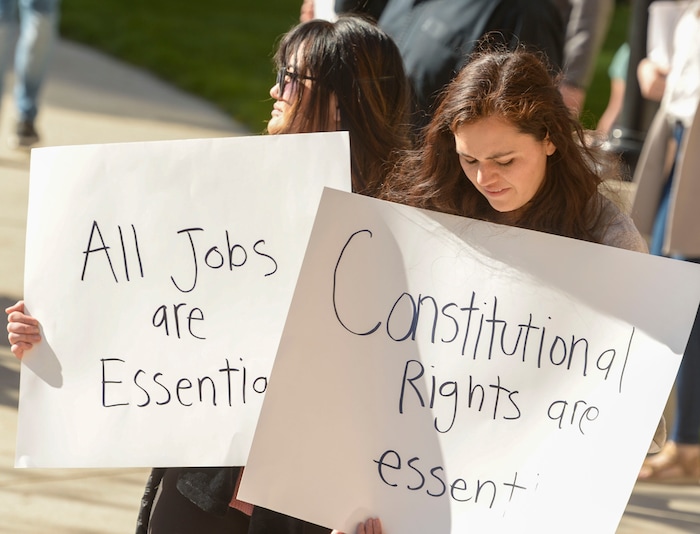 All Jobs
are
Essentia
Constitutional
Rights are
essenti